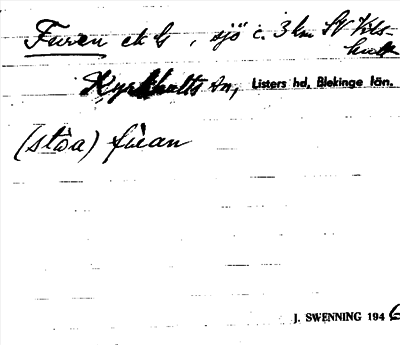 Furen ek b, sjö c. 3 km SV Vils-
hult
Kyrkhults sn, Listers hd, Blekinge län.
(stòa) fùran
J. SWENNING 1946